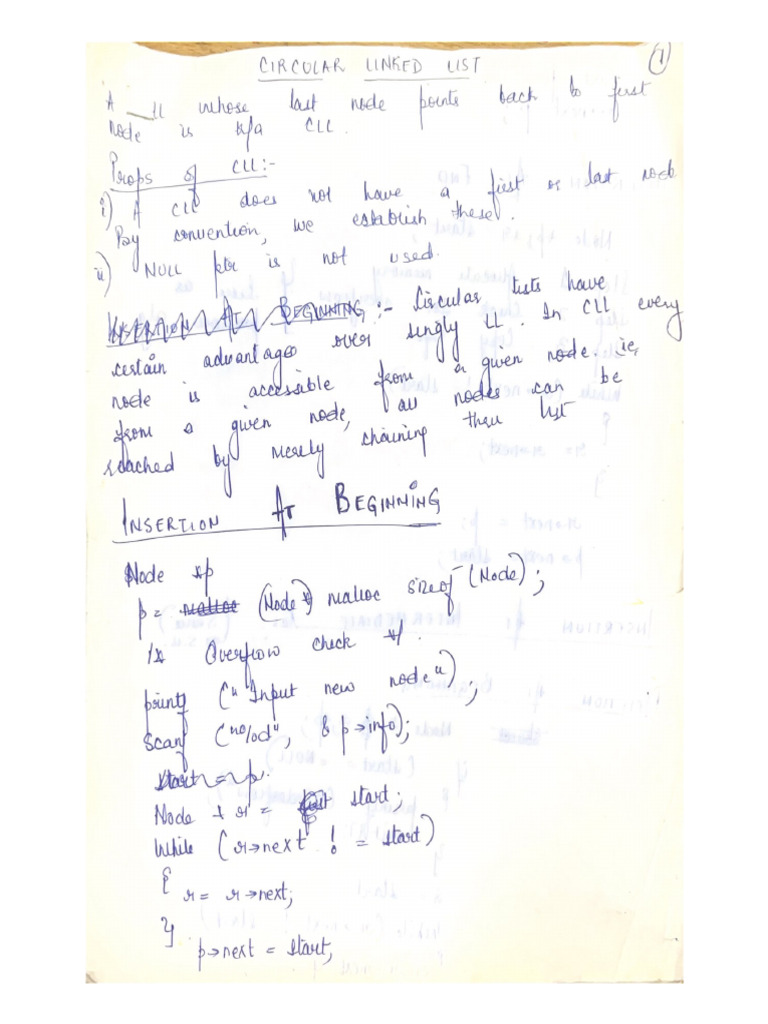 CIRCULAR LINKED LIST
1
A ll whose last node points back to first
node is k/a CLL.
Props of CLL:-
i) A CLL does not have a first or last node
By convention, we establish these.
ii) NULL ptr is not used.
INSERTION AT BEGINNING :- Circular lists have
certain advantages over singly LL. In CLL every
node is accessible from a given node. ie,
from a given node, all nodes can be
reached by merely chaining thru list
INSERTION AT BEGINNING
Node *p
p = malloc (Node *) malloc sizeof (Node);
/* Overflow check */.
printf ("Input new node");
scanf ("%d", & p→info);
start = p.
Node * r = start;
While (r→next != start)
{
r = r→next;
}
p→next = start;